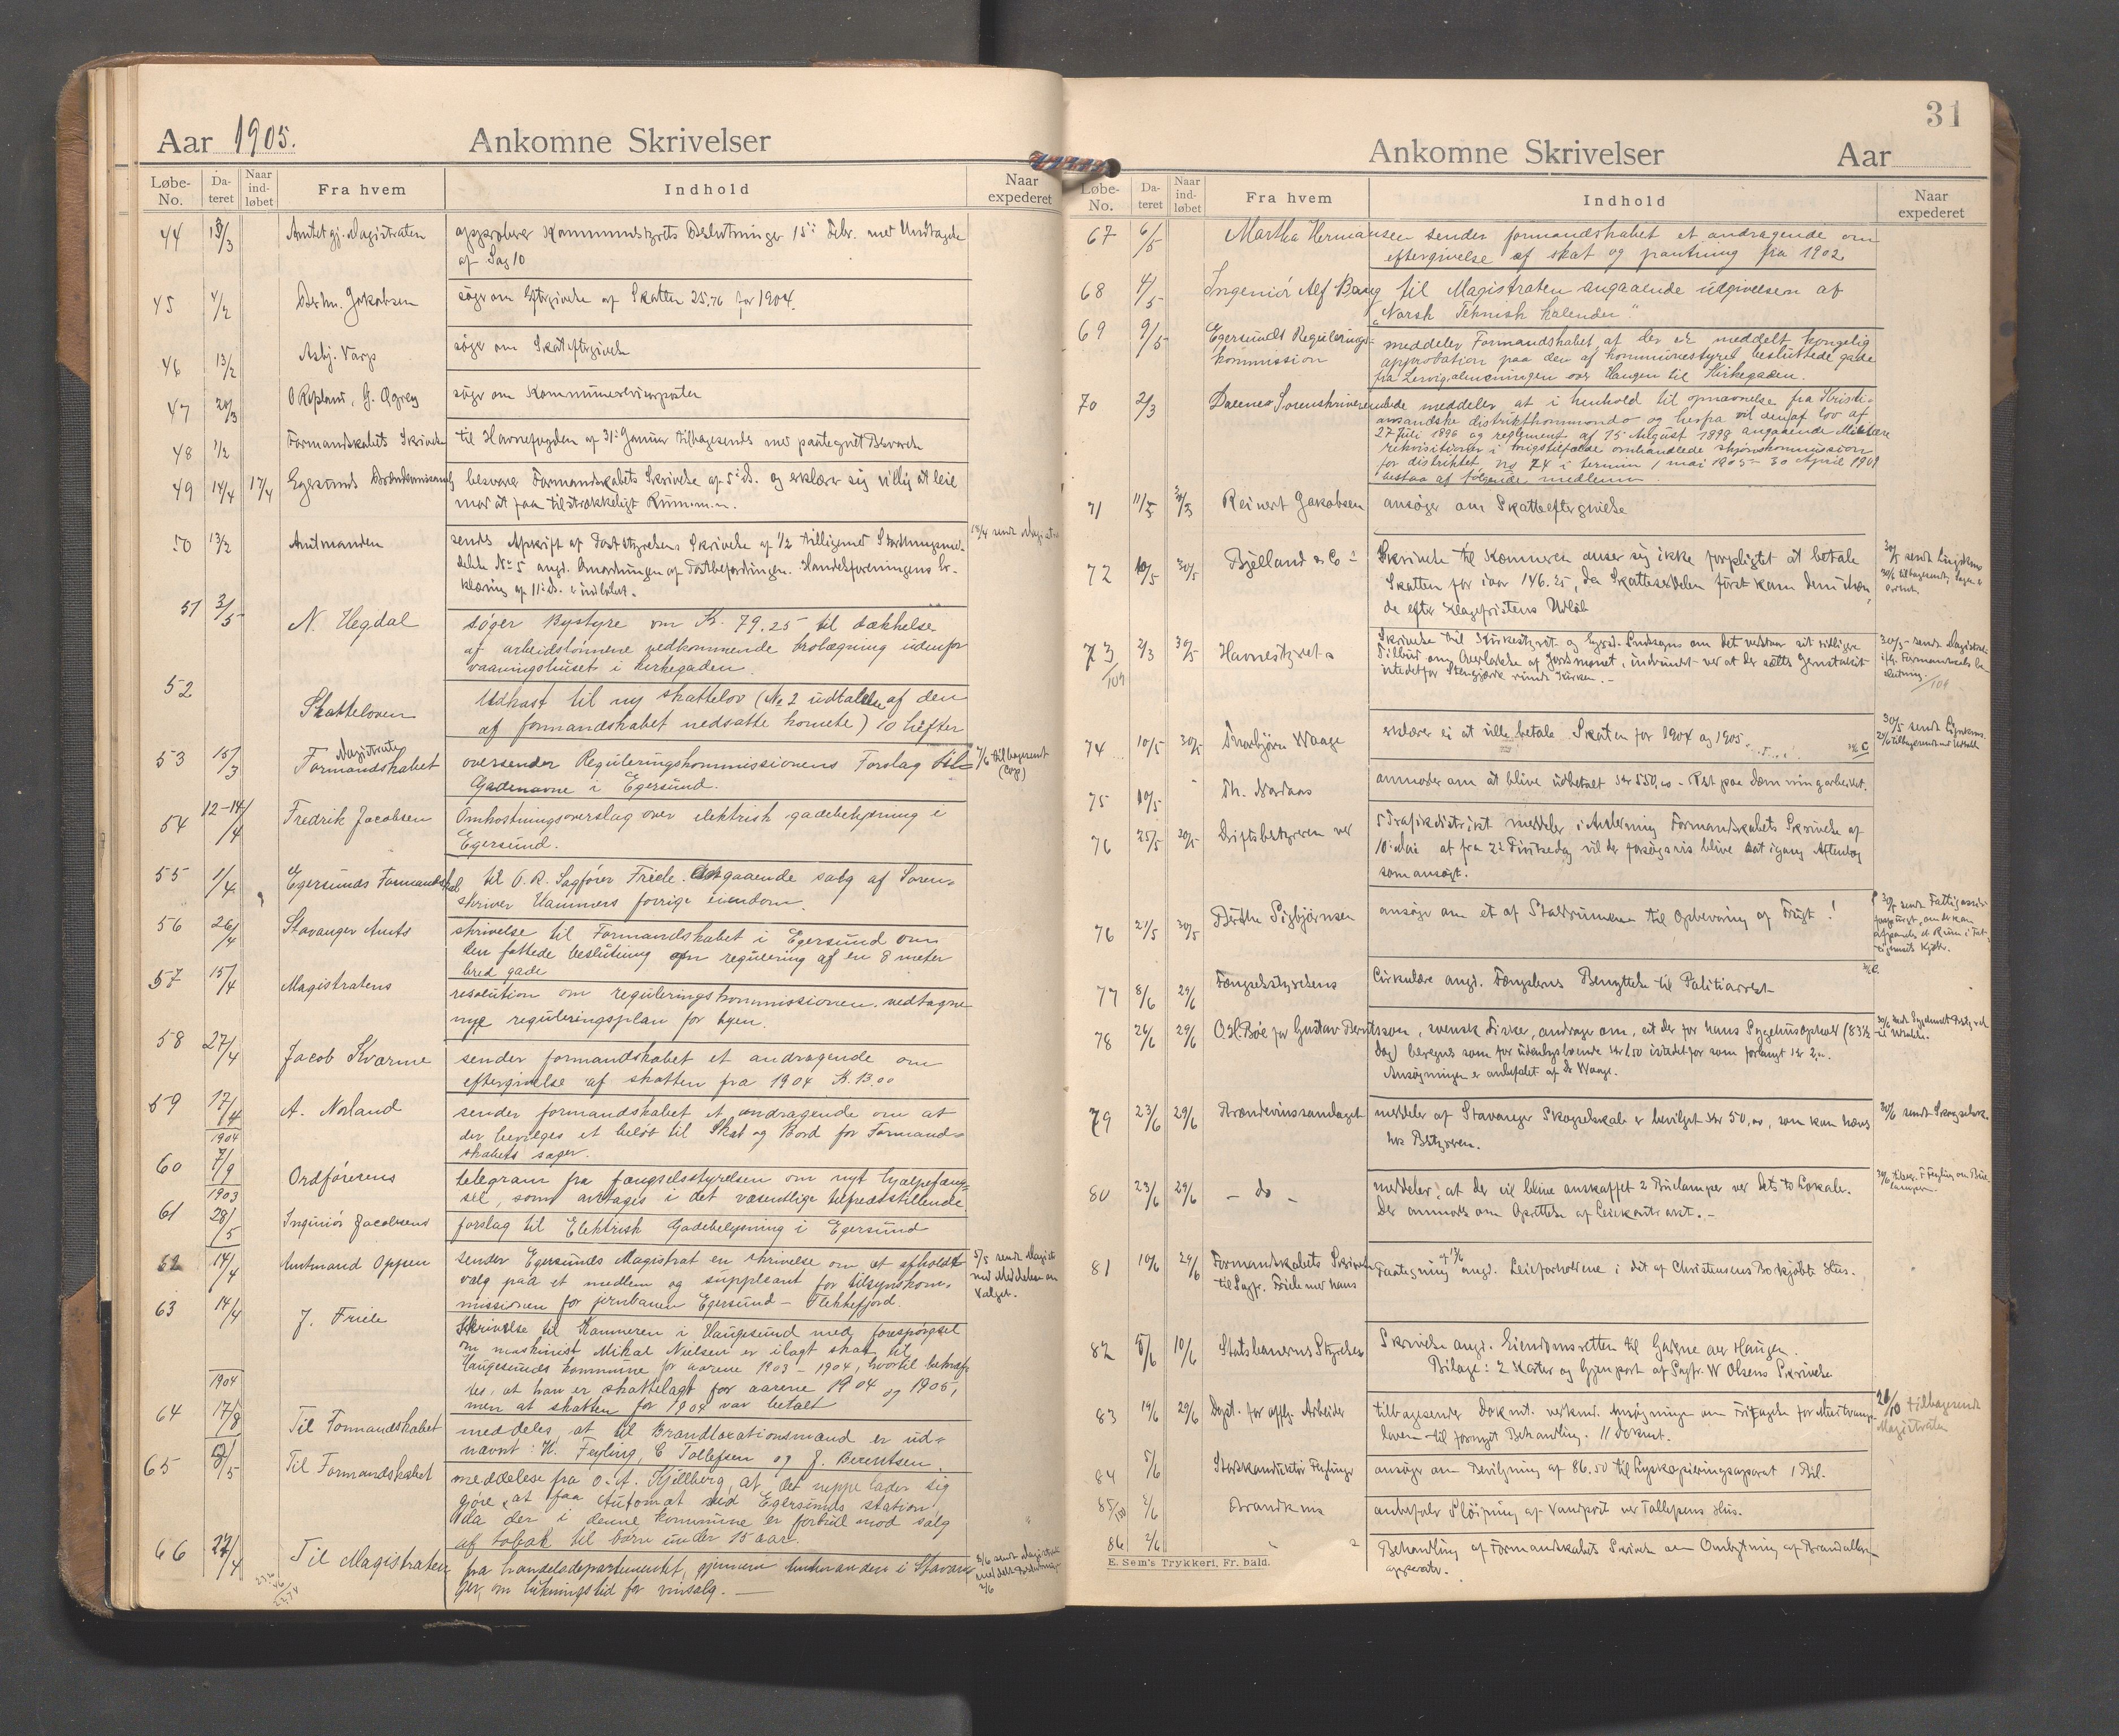 Aar 1905. Ankomne Skrivelser
Løbe-No. Dateret Naar indløbet Fra hvem Indhold Naar expederet
44 13/3 Amtet gj. Magistraten approberer Kommunestyrets Beslutninger 15de Febr. med Undtagelse
af Sag 10
45 4/2 Jakobsen søger om Eftergivelse af Skatten 25.76 for 1904.
46 13/2 Asbj. Varp søger om Skatteftergivelse
47 20/3 søger om Kommunerevisorposten
48 1/2 Formandskabets Skrivelse til Havnefogden af 31te Januar tilbagesendes med paategnet Besvarelse
49 14/4 17/4 Egersunds besvarer Formandskabets Skrivelse af 5te ds. og erklærer sig villig at leie
mod at faa tilstrækkeligt Rum m.m.
50 13/2 Amtmanden sender Afskrift af Poststyrelsens Skrivelse af 1/2 tilligemed Stortingsmed- 18/4 sendt Magistr.
delelse No 5 angd. Anordningen af Postbefordringen. Handelsforeningens Er-
klæring af 11te ds. er indløbet.
51 3/5 N. Hegdal søger Bystyre om K. 79.25 til dækkelse
af arbeidslønnene vedkommende brolægning udenfor
vaaningshuset i kirkegaden.
52 Skatteloven Udkast til ny skattelov (No 2 udtalelse af den
af formandskabet nedsatte komite) 10 hefter
53 15/3 Magistraten
Formandskabet oversender Reguleringskommissionens Forslag til 7/6 tilbagesendt
Gadenavne i Egersund. (Cop)
54 12-14/4 Fredrik Jacobsen Omkostningsoverslag over elektrisk gadebelysning i
Egersund.
55 1/4 Egersunds Formandskab til O.R. Sagfører Friele. Angaaende salg af Soren-
skriver Hammers forrige eiendom.
56 26/4 Stavanger Amts skrivelse til Formandskabet i Egersund om
den fattede beslutning om regulering af en 8 meter
bred gade
57 15/4 Magistratens resolution om reguleringskommissionen vedtagne
nye reguleringsplan for byen.
58 27/4 Jacob Kvarme sender formandskabet et andragende om
eftergivelse af skatten fra 1904 K. 13.00
59 17/4 A. Norland sender formandskabet et andragende om at
der bevilges et beløb til Skab og Bord for Formand-
skabets sager.
1904
60 7/9 Ordførerens telegram fra fængselsstyrelsen om nyt hjælpefæng-
sel, som antages i det væsentlige tilfredsstillende
1903
61 28/5 Ingeniør Jacobsens forslag til Elektrisk Gadebelysning i Egersund
62 14/4 Amtmand Oppen sender Egersunds Magistrat en skrivelse om at afholde 5/5 sendt Magist.
valg paa et medlem og suppleant for tilsynskom- med Meddelelse om
missionen for jernbanen Egersund - Flekkefjord Valget.
63 14/4 J. Friele Skrivelse til Kæmneren i Haugesund med forespørgsel
om maskinist Mikal Nielsen er ilagt skat til
Haugesunds kommune for aarene 1903 - 1904, hvortil bekræf-
tes, at han er skattelagt for aarene 1904 og 1905,
men at skatten for 1904 var betalt
1904
64 17/8 Til Formandskabet meddeles, at til Brandtaxationsmænd er ud-
nævnt: H. Feyling, C Tollefsen og J. Berentsen.
65 2/5 Til Formandskabet meddelelse fra O. A. Kjellberg, at det neppe lader sig
gjøre at faa Automat ved Egersunds station,
da der i denne kommune er forbud mod salg
af tobak til børn under 15 aar.
66 27/4 Til Magistraten fra handelsdepartementet, gjennem Amtmanden i Stavan- 3/6 sendt Magistraten
ger, om lukningstid for vinsalg. 2/6
31
Ankomne Skrivelser Aar
Løbe-No. Dateret Naar indløbet Fra hvem Indhold Naar expederet
67 6/5 Martha Hermansen sender formandskabet et andragende om
eftergivelse af skat og pantning fra 1902
68 4/5 Ingeniør Alf Bang til Magistraten angaaende udgivelsen af
"Norsk Teknisk kalender".
69 9/5 Egersunds Regulerings- meddeler Formandskabet at der er meddelt kongelig
kommission approbation paa den af kommunestyret besluttede gade
fra Lervigalmenningen over Haugen til Kirkegaden.
70 2/3 Dalenes Sorenskriverembede meddeler at i henhold til opnævnelse fra Kristi-
ansandske distriktkommando og herfra vil den af lov af
27 Juli 1896 og reglement af 15 August 1898 angaaende Militære
rekvisitioner i krigstilfælde omhandlede skjønskommission
for distriktet No 74 i termin 1 mai 1905 - 30 April 1908
bestaa af følgende medlemmer
71 11/5 Reinert Jakobsen ansøger om Skatteeftergivelse
72 10/5 30/5 Bjelland & Co Skrivelse til Kæmneren anser sig ikke forpligtet at betale 30/5 sendt Lignskomm.
Skatten for iaar 146.25, da Skatteseddelen først kom dem ihæn-
de efter Klagefristens Udløb
73/104 2/3 30/5 Havnestyret Skrivelse til Kirkestyret og om det vedtar sit tidligere 30/5 sendt Magistrat
Tilbud om Overladelse af Jordsmonet, indrømmet ved at der sættes Jernstakit ifg. Formandskabs be-
istedetfor Stengjærde rundt Kirken. slutning. /104
74 10/5 30/5 Thorbjørn Waage erklærer ei at ville betale Skatten for 1904 og 1905. 30/5 sendt Lignkom.
75 10/5 Th. Nordaas anmoder om at blive udbetalt Kr 550,00 - Rest paa Dæmningarbeidet.
76 25/5 30/5 Driftsbestyreren ved 5 Trafikdistrikt meddeler i Anledning Formandskabets Skrivelse af
10de Mai at fra 2den Pintsedag vil der forsøgsvis blive sat igang Aftentog
som ansøgt.
76 21/5 30/5 Berthe Sigbjørnsen ansøger om et af Staldrummene til Opbevaring af Frugt! 30/5 sendt Fattigvæsen
77 8/6 29/6 Fængselsstyrelsens Cirkulære angd. Fængslens Benyttelse til Politiarrest
78 26/6 29/6 O.H. Bøe for Gustav Berntsson, svensk Fisker, andrager om, at der for hans Sygehusophold (83 1/2 30/6 sendt Sygehusets Bestyrer
Dag) beregnes som for udenbysboende Kr 1.50 istedetfor som forlangt Kr 2,00. til Udtalelse.
Ansøgningen er anbefalet af Dr Waage.
79 23/6 29/6 Brændevinssamlaget meddeler at Stavanger Skogselskab er bevilget Kr 50,00, som kan hæves 30/6 sendt Skogselsk.
hos Bestyreren.
80 23/6 29/6 - do - meddeler, at der vil blive anskaffet 2 Buelamper ved dets to Lokaler. 30/6
Der anmodes om Oprettelse af Leiekontrakt. -
81 10/6 29/6 Formandskabets Skrivelse Paategning af 17/6 angd. Leieforholdene i det af Christensens Bo kjøbte Hus.
til Sagf. Friele med hans
82 8/6 10/6 Statsbanernes Styrelse Skrivelse angd. Eiendomsretten til Gaderne over Haugen.
Bilage: 2 Karter og Gjenpart af Sagfr. W Olsens Skrivelse
83 19/6 29/6 Dept. for offtg. Arbeider tilbagesender Dokmt. vedkmd. Ansøgning om Fritagelse for Murtvang- 26/10 tilbagesendt
loven til fornyet Behandling. 11 Dokmt. Magistraten
84 5/6 Stadskonduktør Feyling ansøger om Bevilgning af 86.50 til Lyskopieringsapparat 1 Bil.
85/100 2/6 Brandkms anbefaler Sløifning af Vandpost ved Tollefsens Hus.
86 2/6 " Behandling af Formandskabets Skrivelse om Ombytning af Brandalarm-
apparater.
E. Sem's Trykkeri, Fr. hald.